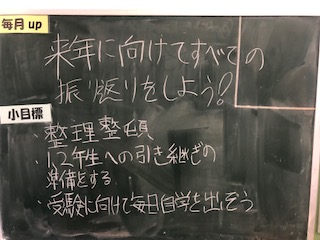 毎月up
来年に向けてすべての
振り返りをしよう!
小目標
・整理整頓
・1,2年生への引き継ぎの
準備をする
・受験に向けて毎日自学を出そう